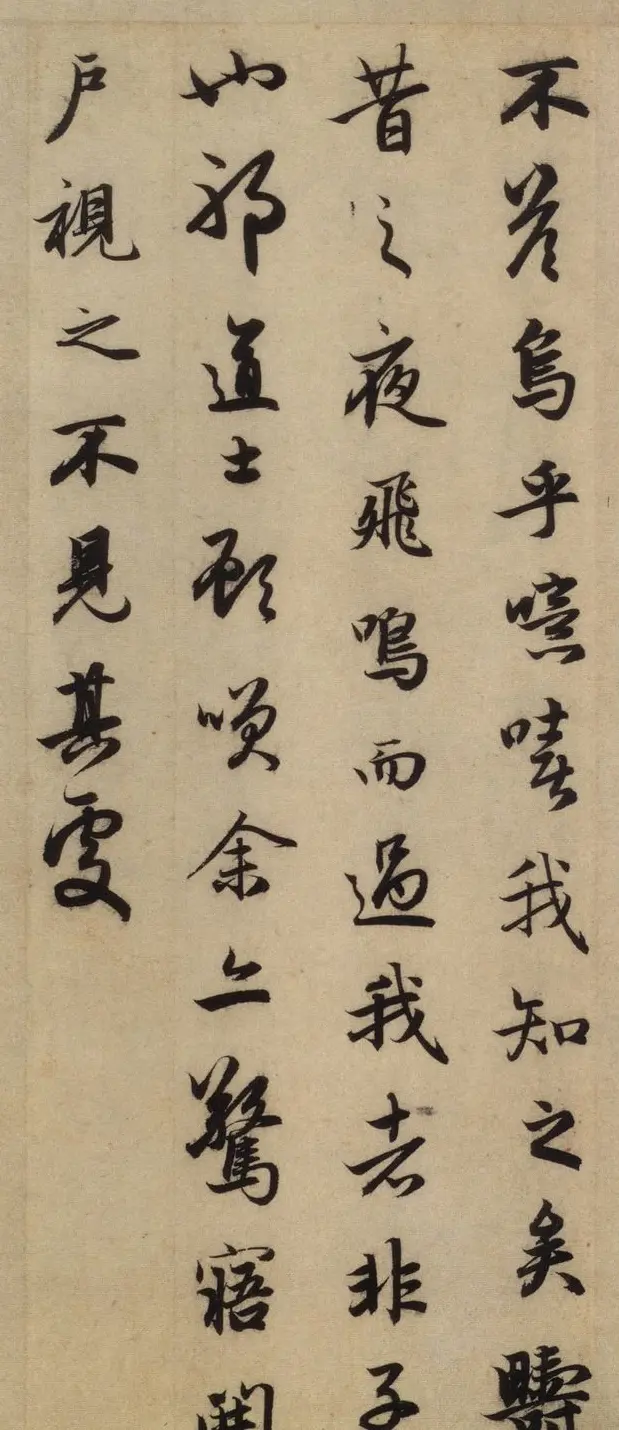 不答烏乎噫嘻我知之矣疇
昔之夜飛鳴而過我者非子
也邪道士顧唉余亦驚寤開
戶視之不見其處